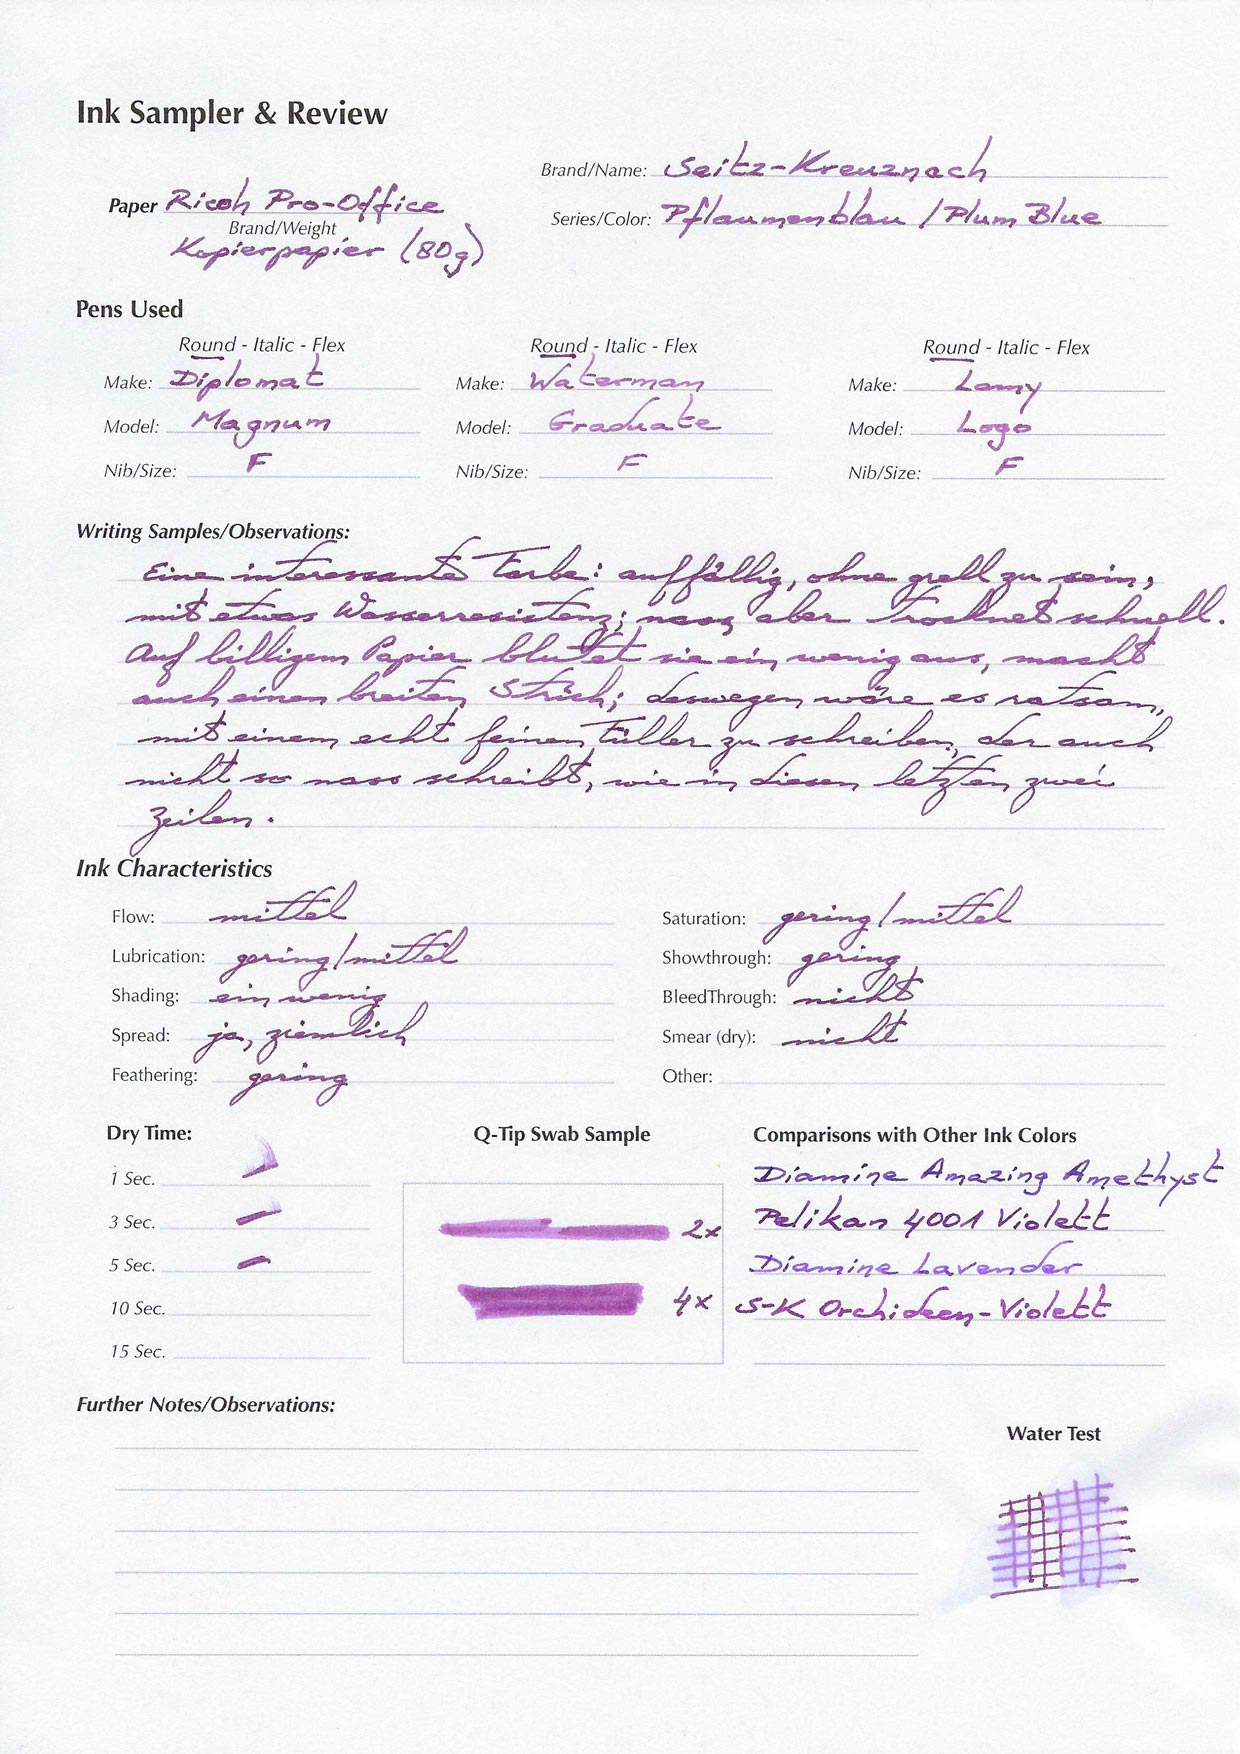 Ink Sampler & Review
Brand/Name: Seitz-Kreuznach
Paper Ricoh Pro-Office
Series/Color: Pflaumenblau / Plum Blue
Brand/Weight
Kopierpapier (80g)
Pens Used
Round - Italic - Flex Round - Italic - Flex Round - Italic - Flex
Make: Diplomat Make: Waterman Make: Lamy
Model: Magnum Model: Graduate Model: Logo
Nib/Size: F Nib/Size: F Nib/Size: F
Writing Samples/Observations:
Eine interessante Farbe: auffällig, ohne grell zu sein,
mit etwas Wasserresistenz; nass, aber trocknet schnell.
Auf billigem Papier blutet sie ein wenig aus, macht
auch einen breiten Strich; deswegen wäre es ratsam,
mit einem echt feinen Füller zu schreiben, der auch
nicht so nass schreibt, wie in diesen letzten zwei
Zeilen.
Ink Characteristics
Flow: mittel Saturation: gering/mittel
Lubrication: gering/mittel Showthrough: gering
Shading: ein wenig BleedThrough: nicht
Spread: ja, ziemlich Smear (dry): nicht
Feathering: gering Other:
Dry Time: Q-Tip Swab Sample Comparisons with Other Ink Colors
1 Sec. Diamine Amazing Amethyst
3 Sec. 2x Pelikan 4001 Violett
5 Sec. Diamine Lavender
10 Sec. 4x S-K Orchideen-Violett
15 Sec.
Further Notes/Observations:
Water Test